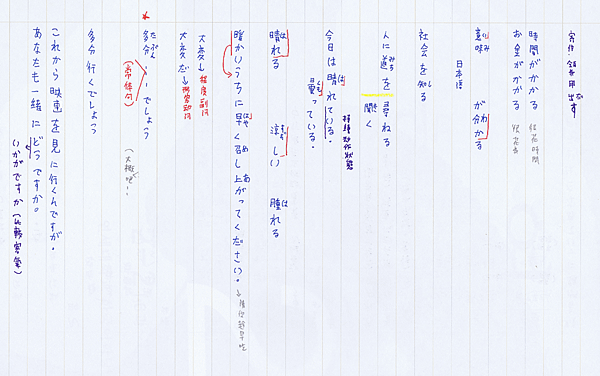 寄信・領書用出す
時間がかかる 花時間
お金がかかる 很花錢
意味 が分かる
日本語
社会を知る
人に道を尋ねる
聞く
今日は晴れている。 持續動作狀態
曇っている。
晴れる 涼しい 腫れる
暖かいうちに早く召し上がってください。→請趁熱早吃
大変→程度副詞
大変だ→形容動詞
*多分…でしょう
(常併用) (大概吧…)
多分行くでしょう
これから映画を見に行くんですが。
あなたも一緒にどうですか。
いかがですか(比較客氣)